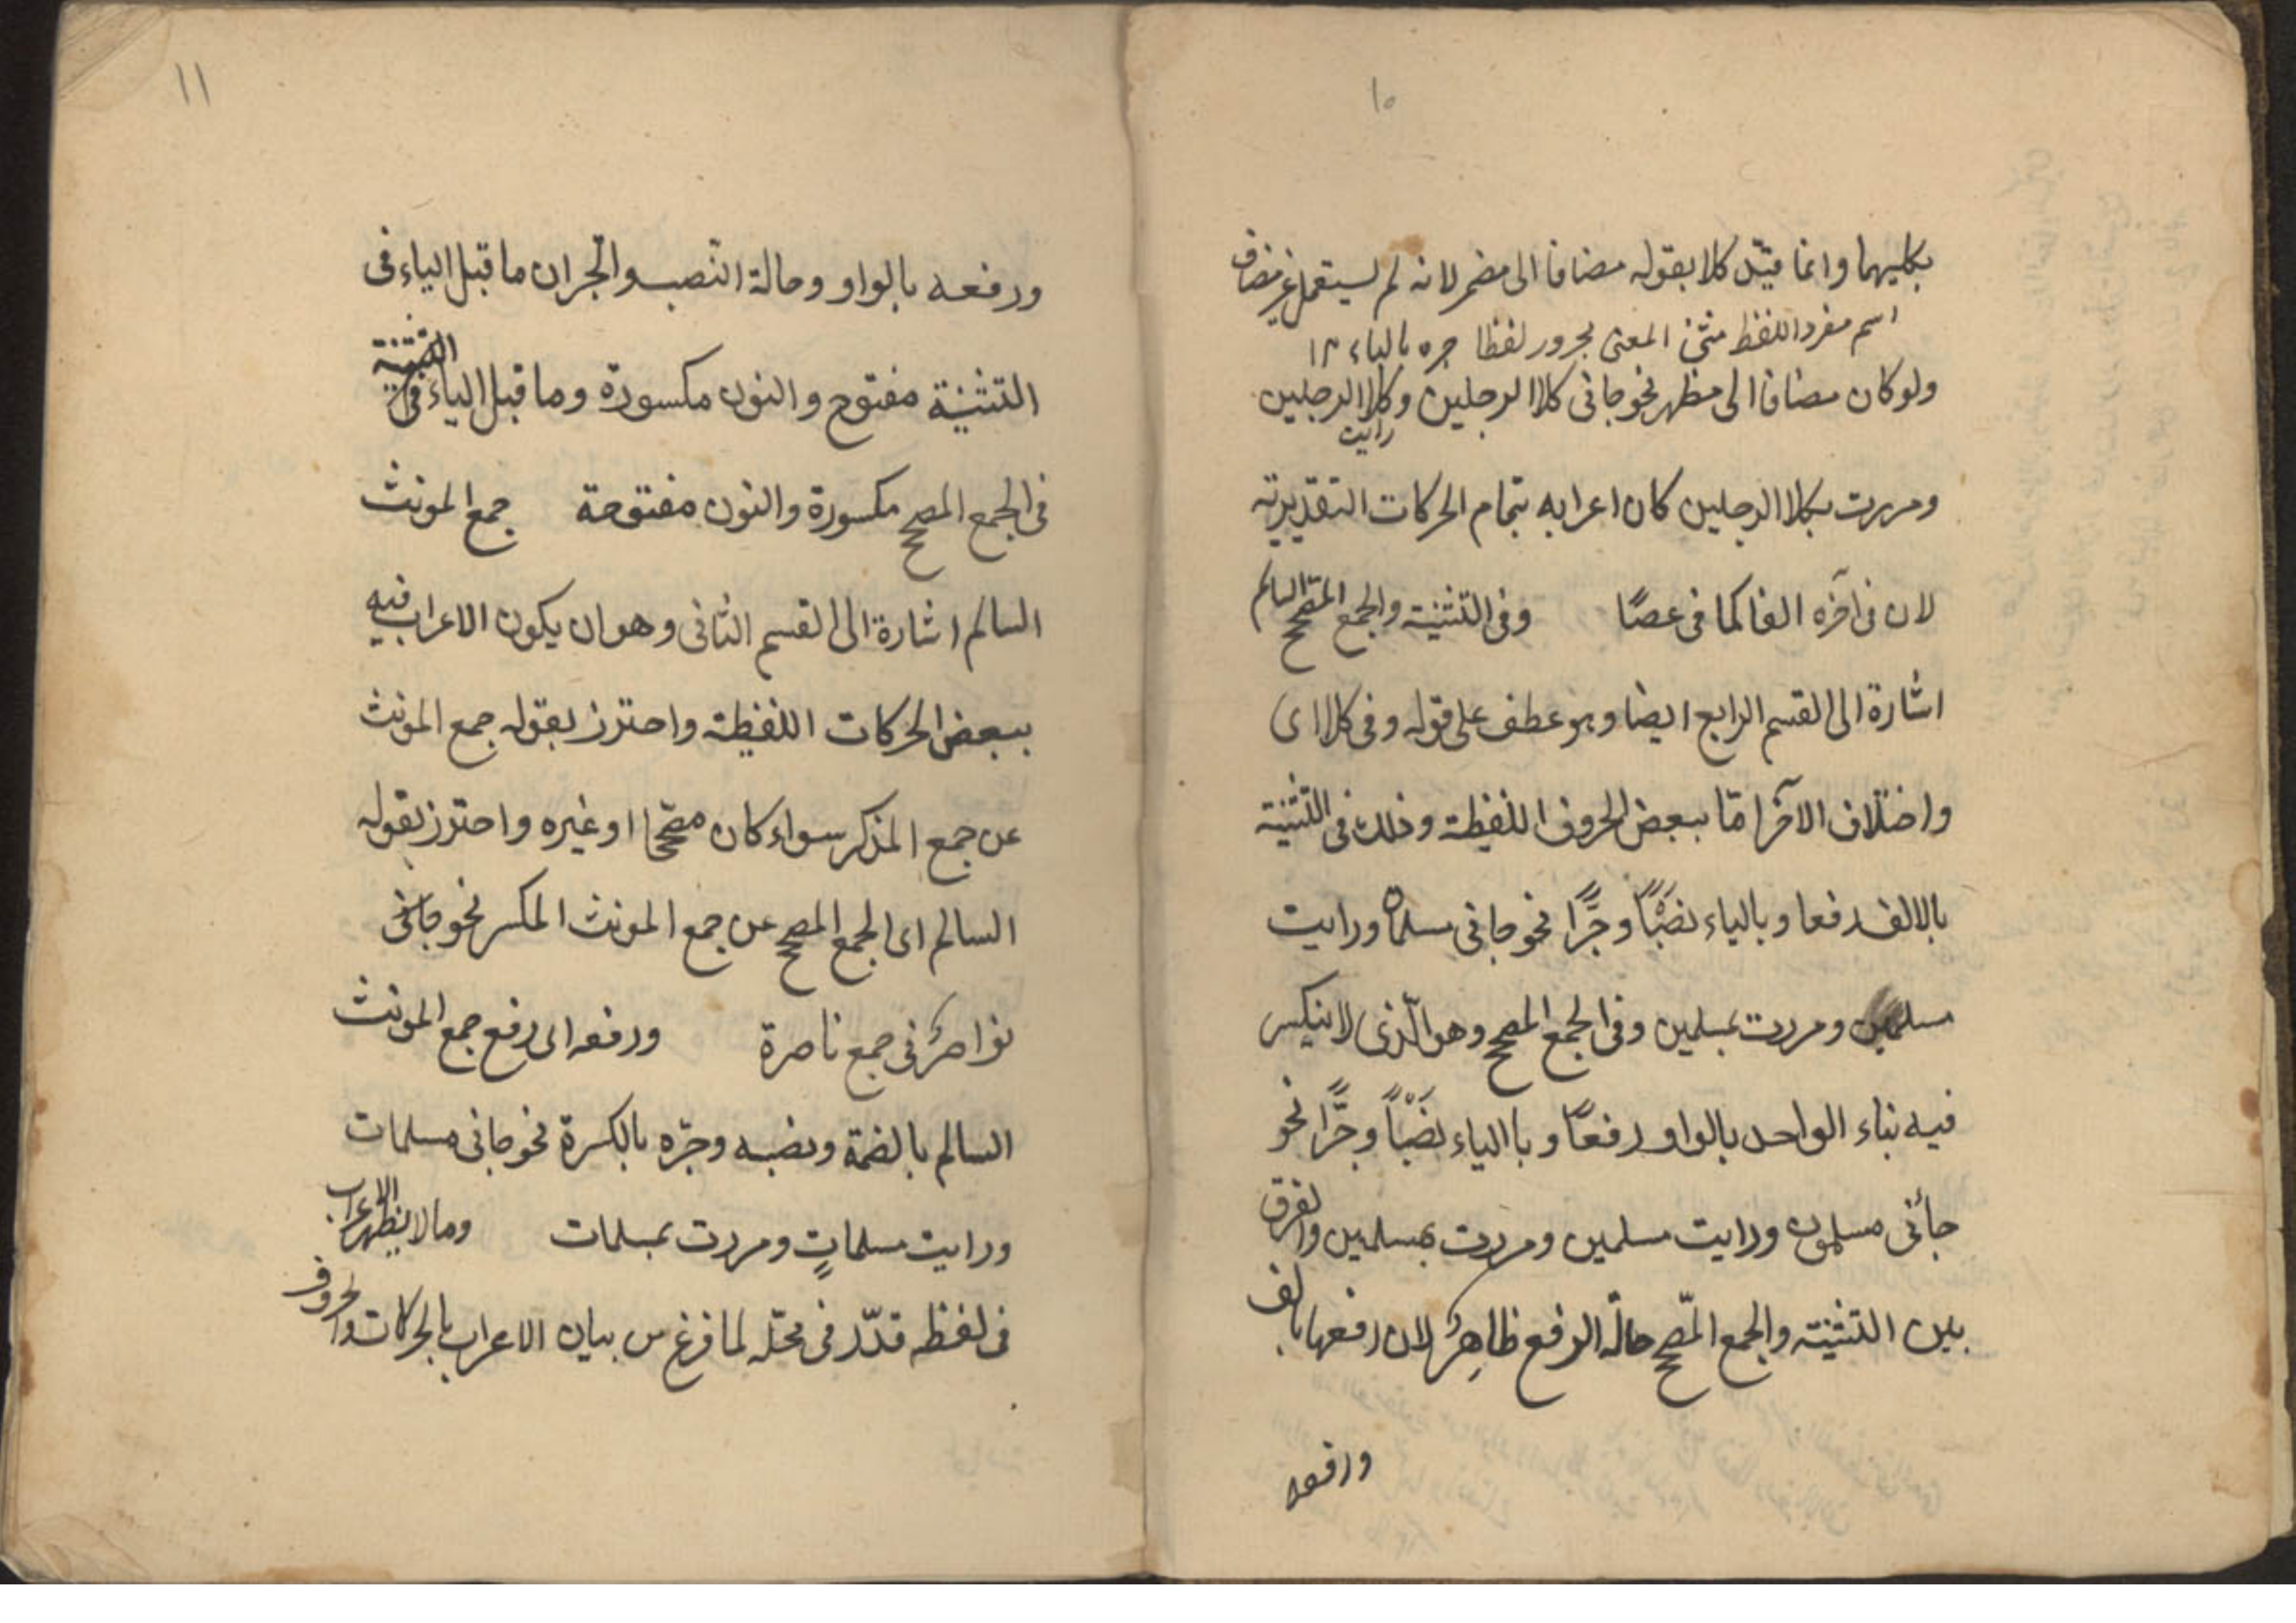 ١٠
بكليهما وانما قيّد كلا بقوله مضافا الى مضمر لانه لم يستعمل غير مضاف
اسم مفرد اللفظ مثنى المعنى مجرور لفظا جره بالياء ١٢
ولو كان مضافا الى مظهر نحو جانى كلا الرجلين وكلا الرجلين
رايت
ومررت بكلا الرجلين كان اعرابه بتمام الحركات التقديرية
لان فى آخره الفا كما فى عصًا وفى التثنية والجمع المصحح السالم
اشارة الى القسم الرابع ايضا وهو عطف على قوله وفى كلا اى
واختلاف الآخر امّا ببعض الحروف اللفظية وذلك فى التثنية
بالالف رفعا وبالياء نصْبًا وجرًّا نحو جانى مسلمان ورايت
مسلمين ومررت بمسلمين وفى الجمع المصحح وهو الّذى لا ينكسر
فيه بناء الواحد بالواو رفعًا وباالياء نصَْبًا وجرًّا نحو
جائنى مسلمون ورايت مسلمين ومررت بمسلمين والفرق
بين التثنية والجمع المصّحح حالة الرفع ظاهِرٌ لان رفعها بالف
ورفعه
١١
ورفعه بالواو وحالة النّصب والجر ان ما قبل الياء فى
التثنية مفتوح والنون مكسورة وما قبل الياء فى التثنية
فى الجمع المصحح مكسورة والنون مفتوحة جمع المونث
السالم اشارة الى القسم الثانى وهو ان يكون الاعراب فيه
ببعض الحركات اللفظية واحترز بقوله جمع المونث
عن جمع المذكر سواء كان مصححا او غيره واحترز بقوله
السالم اى الجمع المصحح عن جمع المونث المكسر نحو جائنى
نواصرٌ فى جمع ناصرة ورفعه اى رفع جمع المونث
السالم بالضمة ونصبه وجرّه بالكسرة نحو جانى مسلمات
ورايت مسلماتٍ ومررت بمسلمات وما لا يظهر الاعراب
فى لفظه قدّر فى محلّه لما فرغ من بيان الاعراب بالحركات والحروف